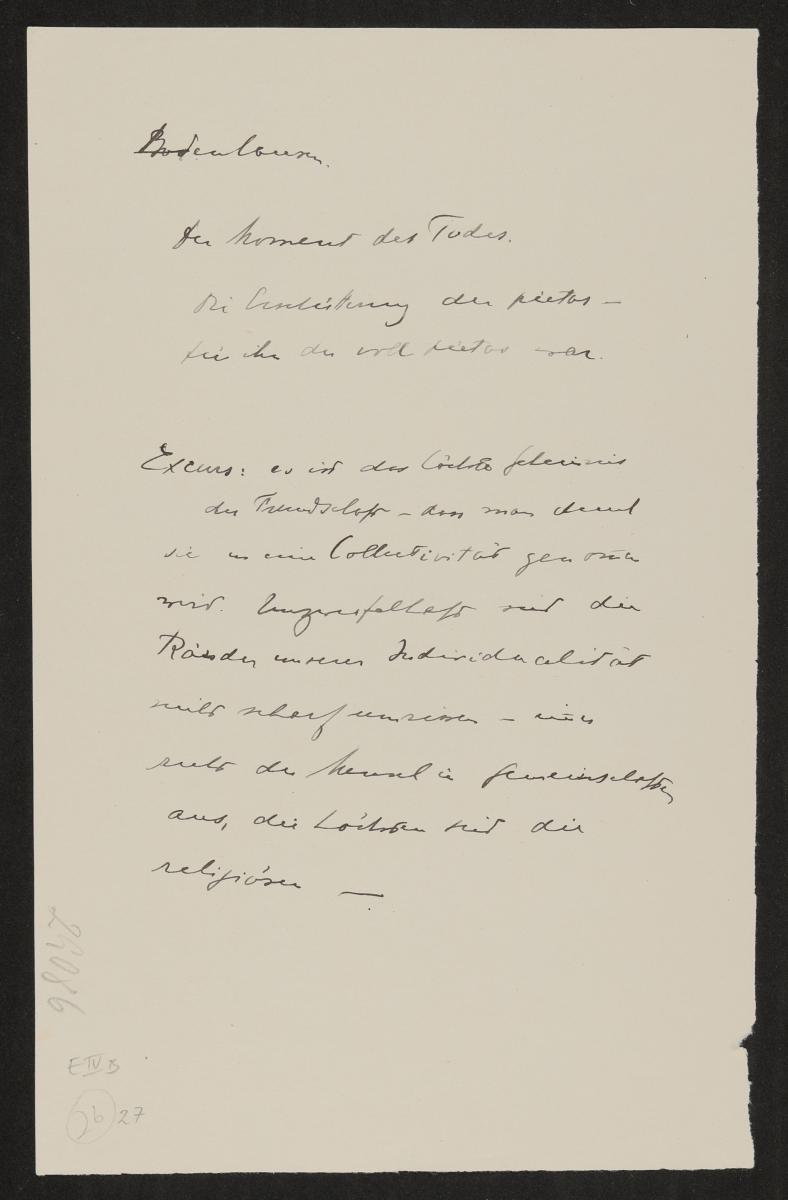 Bodenhausen.
Der Moment des Todes.
Die Erschütterung der pietas –
für ihn der voll pietas war.
Excurs: es ist das höchste Geheimnis
der Freundschaft – dass man durch
sie in eine Collectivität genom̄en
wird. Unzweifelhaft sind die
Ränder unserer Individualität
nicht scharf umrissen –
ruht der Mensch in Gemeinschaften
aus, die höchsten sind die
religiösen —
98036
E IV B
26 27